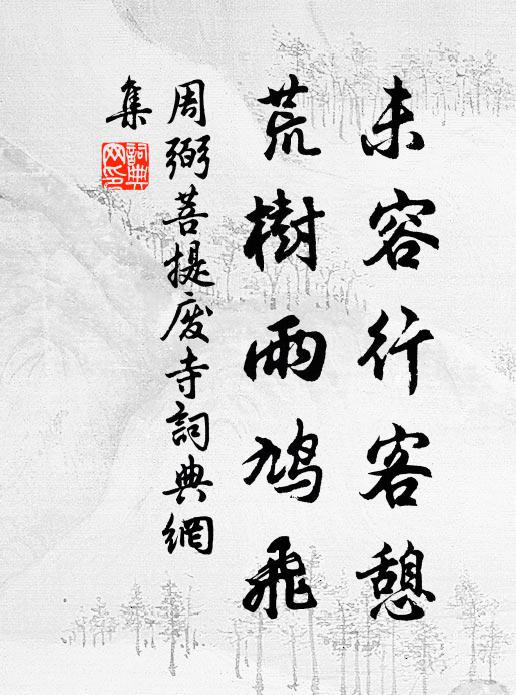 未容行客憩
荒樹雨鳩飛
周弼菩提废寺詞典網
集
詞典網印